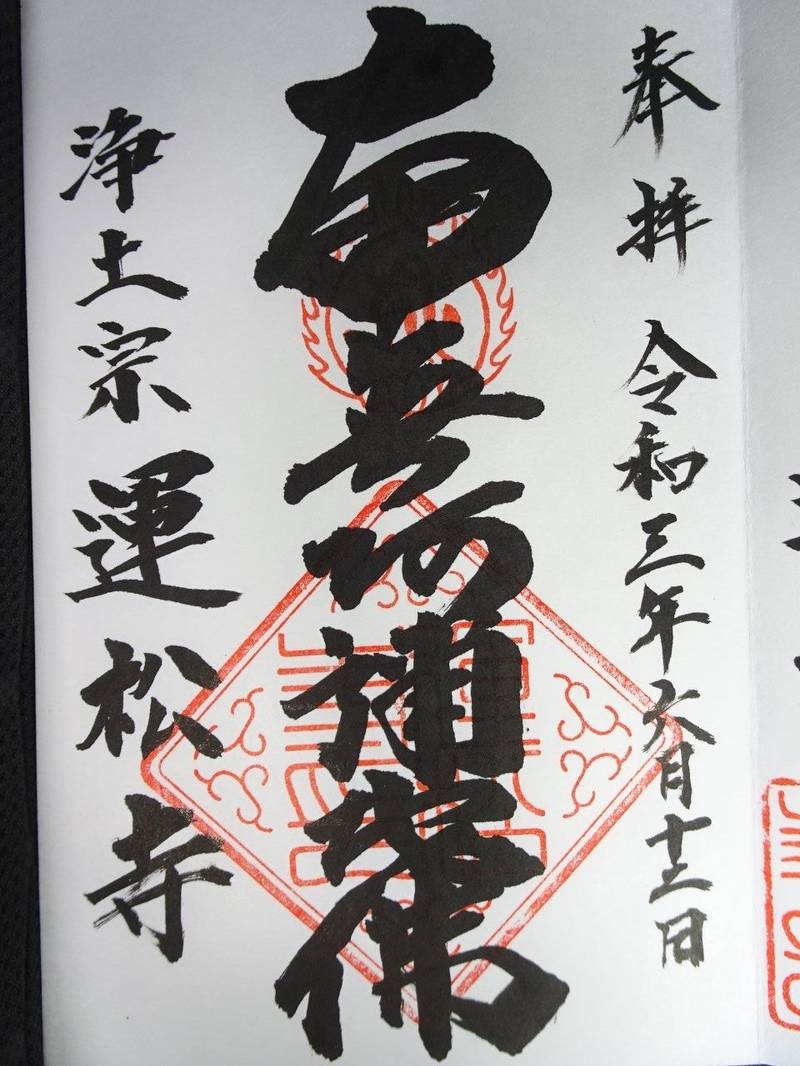 奉拝 令和三年六月十三日
南無阿彌陀佛
浄土宗 運松寺